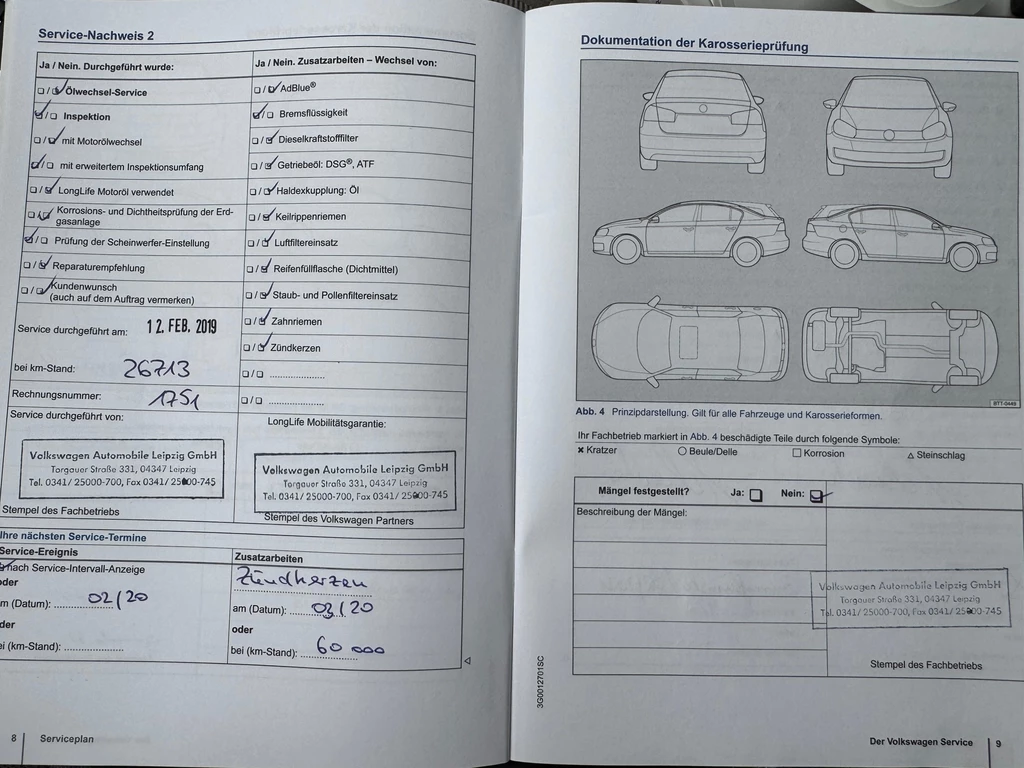 Service-Nachweis 2
Ja / Nein. Durchgeführt wurde:
Ölwechsel-Service
Inspektion
mit Motorölwechsel
mit erweitertem Inspektionsumfang
LongLife Motoröl verwendet
Korrosions- und Dichtheitsprüfung der Erd-
gasanlage
Prüfung der Scheinwerfer-Einstellung
Reparaturempfehlung
Kundenwunsch
(auch auf dem Auftrag vermerken)
Service durchgeführt am: 12. FEB. 2019
bei km-Stand: 26713
Rechnungsnummer: 1751
Service durchgeführt von:
Volkswagen Automobile Leipzig GmbH
Torgauer Straße 331, 04347 Leipzig
Tel. 0341/ 25000-700, Fax 0341/ 25000-745
Stempel des Fachbetriebs
Ja / Nein. Zusatzarbeiten – Wechsel von:
AdBlue®
Bremsflüssigkeit
Dieselkraftstofffilter
Getriebeöl: DSG®, ATF
Haldexkupplung: Öl
Keilrippenriemen
Luftfiltereinsatz
Reifenfüllflasche (Dichtmittel)
Staub- und Pollenfiltereinsatz
Zahnriemen
Zündkerzen
LongLife Mobilitätsgarantie:
Volkswagen Automobile Leipzig GmbH
Torgauer Straße 331, 04347 Leipzig
Tel. 0341/ 25000-700, Fax 0341/ 25000-745
Stempel des Volkswagen Partners
Ihre nächsten Service-Termine
Service-Ereignis
nach Service-Intervall-Anzeige
oder
m (Datum): 02/20
der
ei (km-Stand):
Zusatzarbeiten
Zündkerzen
am (Datum): 03/20
oder
bei (km-Stand): 60 000
8 Serviceplan
Dokumentation der Karosserieprüfung
BTT-0488
Abb. 4 Prinzipdarstellung. Gilt für alle Fahrzeuge und Karosserieformen.
Ihr Fachbetrieb markiert in Abb. 4 beschädigte Teile durch folgende Symbole:
× Kratzer ○ Beule/Delle □ Korrosion △ Steinschlag
Mängel festgestellt? Ja: Nein:
Beschreibung der Mängel:
Volkswagen Automobile Leipzig GmbH
Torgauer Straße 331, 04347 Leipzig
Tel. 0341/ 25000-700, Fax 0341/ 25000-745
Stempel des Fachbetriebs
3G0012701SC
Der Volkswagen Service 9